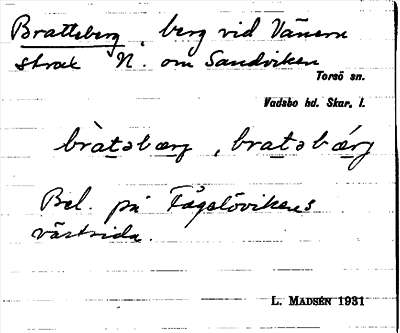 Bratteberg, berg vid Vänern
strax N. om Sandviken
Torsö sn.
Vadsbo hd. Skar. l.
brà̱təbæ̱rg, bra̱təbǽ̱rg
Bel. på Fågelövikens
västsida.
L. MADSÉN 1931